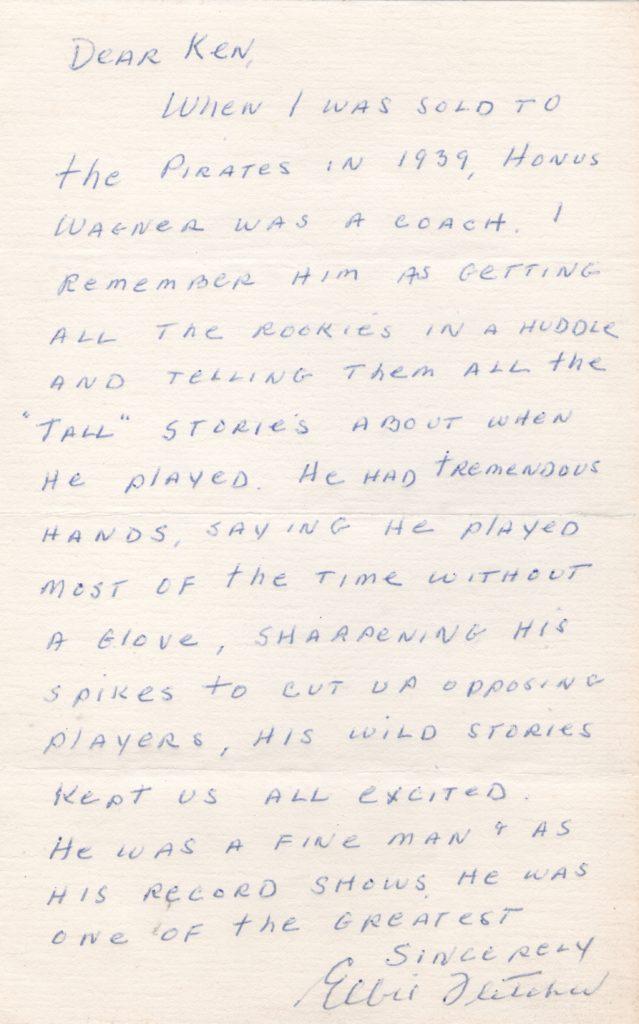 Dear Ken,
When I was sold to
the Pirates in 1939, Honus
Wagner was a coach. I
remember him as getting
all the rookies in a huddle
and telling them all the
"Tall" stories about when
he played. He had tremendous
hands, saying he played
most of the time without
a glove, sharpening his
spikes to cut up opposing
players, his wild stories
kept us all excited.
He was a fine man & as
his record shows he was
one of the greatest
Sincerely
Elbie Fletcher